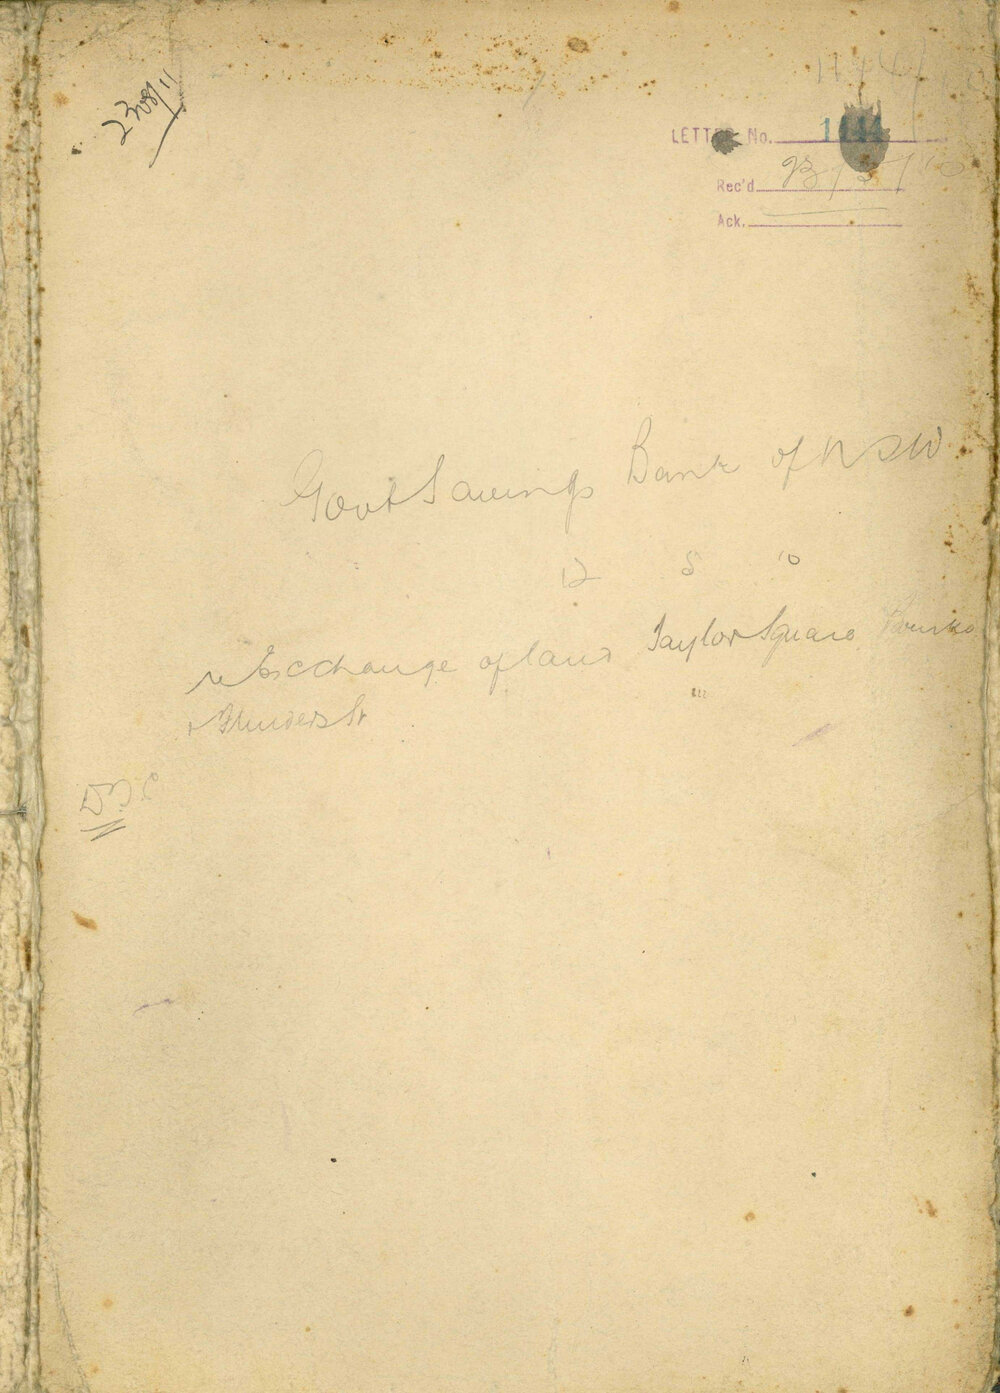 2308/11
LETTER No. 1144
Rec'd 13/5/10
Ack.
Govt Savings Bank of NSW
12 5 '10
re Exchange of land Taylor Square, Bourke
& Flinders St